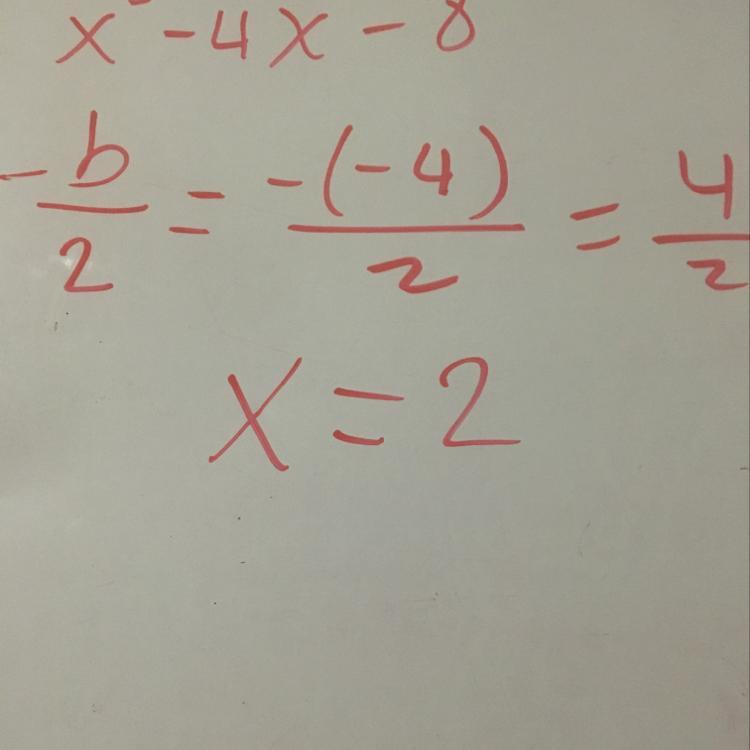 x² - 4x - 8
-b/2 = -(-4)/2 = 4/2
x = 2